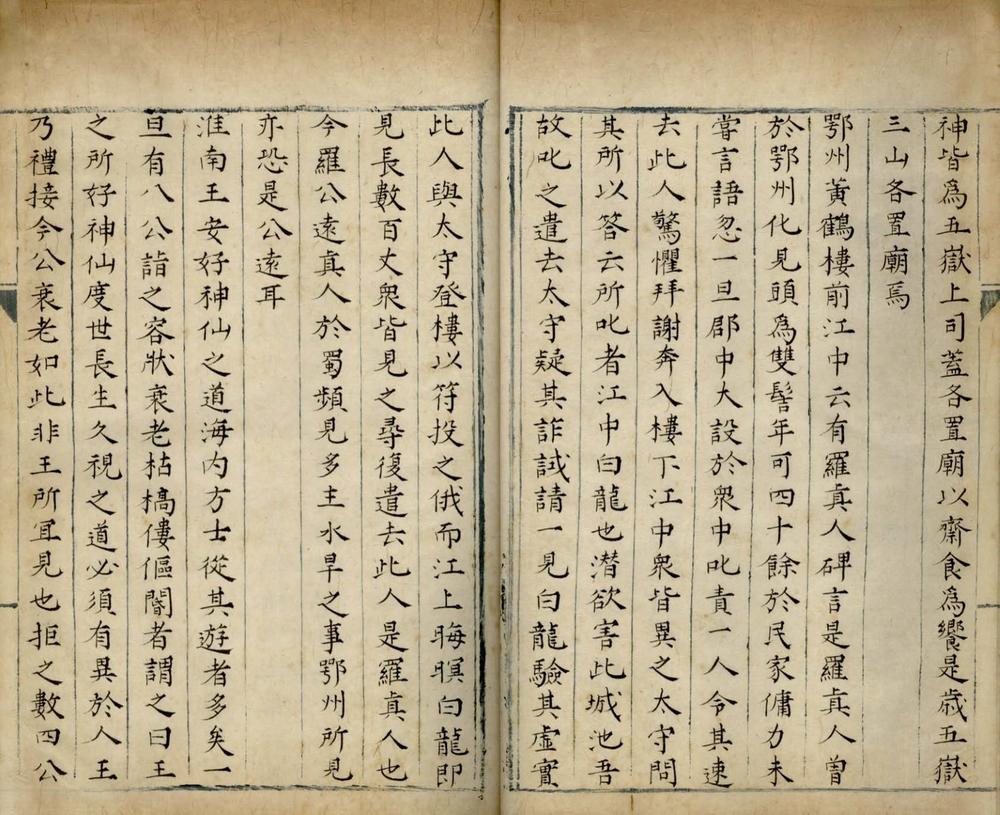 神皆爲五嶽上司蓋各置廟以齋食爲饗是歲五嶽
三山各置廟焉
鄂州黄鶴樓前江中云有羅真人碑言是羅真人曾
於鄂州化見頭爲雙髻年可四十餘於民家傭力未
嘗言語忽一旦郡中大設於衆中叱責一人令其速
去此人驚懼拜謝奔入樓下江中衆皆異之太守問
其所以答云所叱者江中白龍也潜欲害此城池吾
故叱之遣去太守疑其詐誠請一見白龍驗其虛實
此人與太守登樓以符投之俄而江上晦暝白龍即
見長數百丈衆皆見之尋復遣去此人是羅真人也
今羅公遠真人於蜀頻見多主水旱之事鄂州所見
亦恐是公遠耳
淮南王安好神仙之道海内方士從其遊者多矣一
旦有八公詣之容狀衰老枯槁傴僂閽者謂之曰王
之所好神仙度世長生久視之道必須有異於人王
乃禮接今公衰老如此非王所宜見也拒之數四公